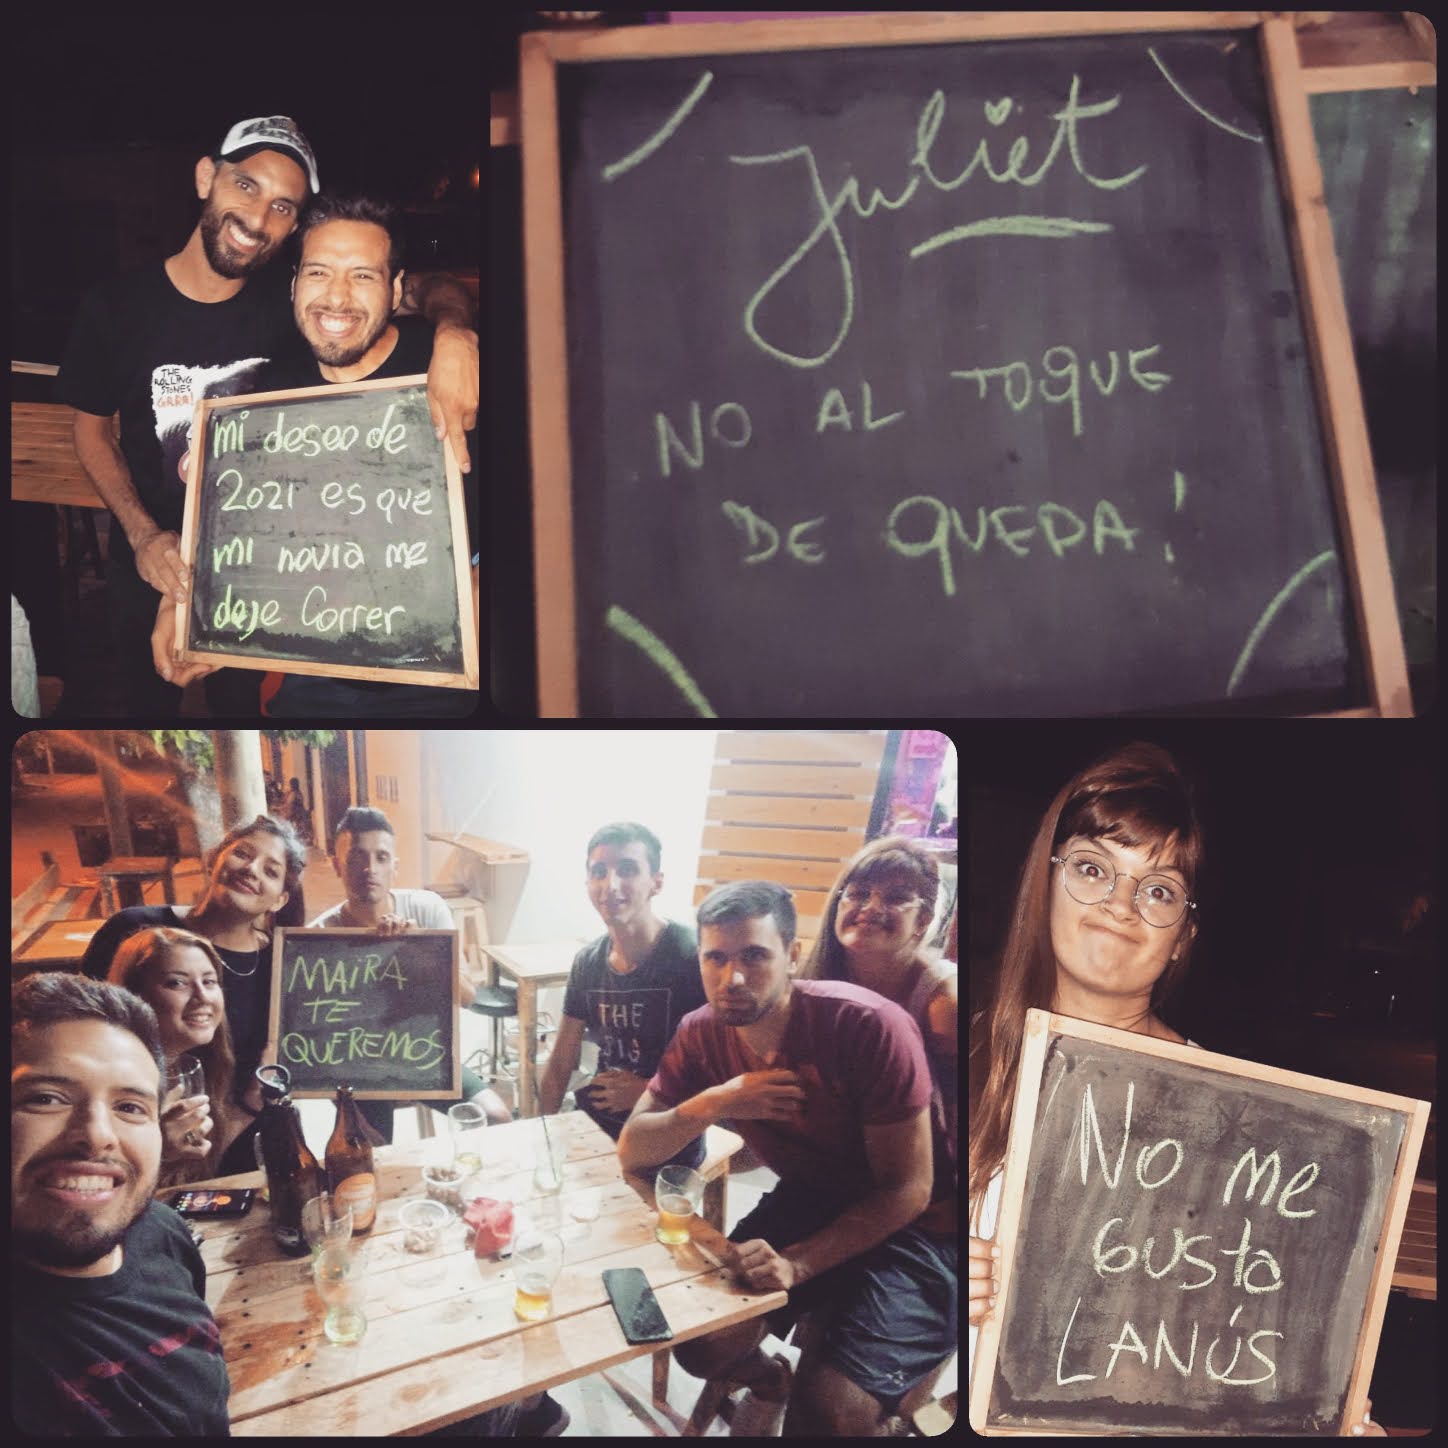 THE
ROLLING
STONES
GRRR!
mi deseo de
2021 es que
mi novia me
deje Correr
Juliet
NO AL TOQUE
DE QUEDA!
MAIRA
TE
QUEREMOS
THE
BIG
No me
Gusta
LANÚS